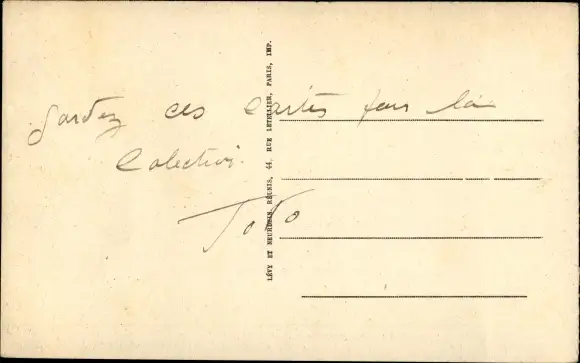 Gardez ces cartes pour la
Colection.
Toto
LÉVY ET NEURDEIN RÉUNIS, 44, RUE LETELLIER, PARIS, IMP.